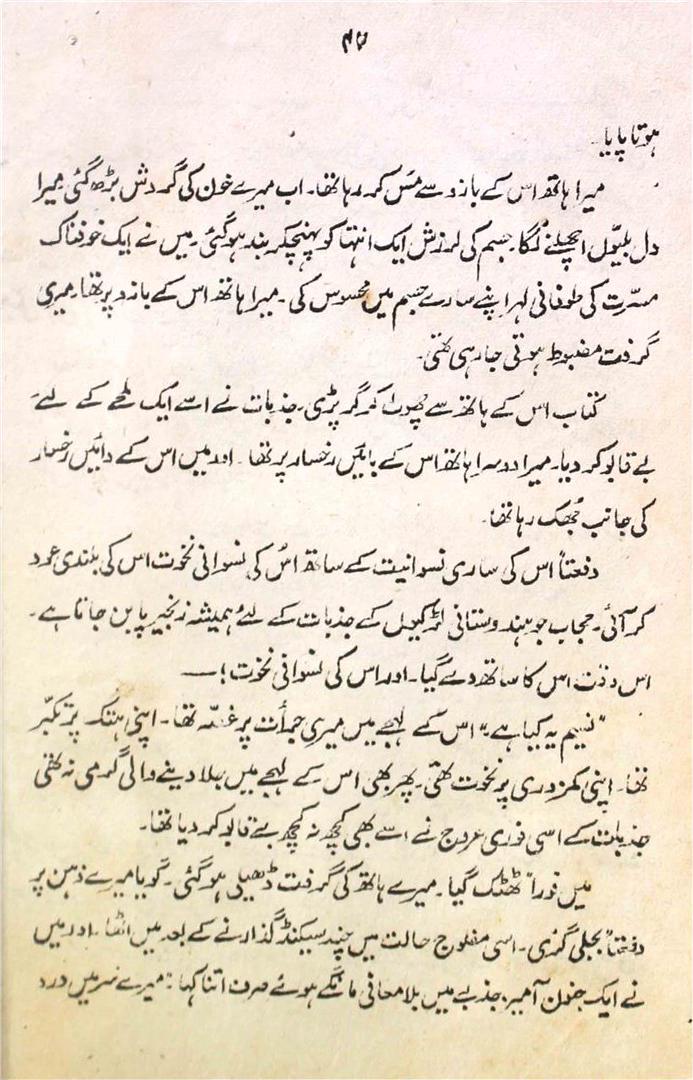 ۴۷
ہوتا پایا۔
میرا ہاتھ اس کے بازو سے مَس کر رہا تھا۔ اب میرے خون کی گردش بڑھ گئی۔ میرا
دل بلیّوں اچھلنے لگا۔ جسم کی لرزش ایک انتہا کو پہنچکر بند ہو گئی۔ میں نے ایک خوفناک
مسرّت کی طوفانی لہر اپنے سارے جسم میں محسوس کی۔ میرا ہاتھ اس کے بازو پر تھا۔ میری
گرفت مضبوط ہوتی جا رہی تھی۔
کتاب اس کے ہاتھ سے چھوٹ کر گر پڑی۔ جذبات نے اسے ایک لمحے کے لئے
بے قابو کر دیا۔ میرا دوسرا ہاتھ اس کے بائیں رخسار پر تھا۔ اور میں اس کے دائیں رخسار
کی جانب جُھک رہا تھا۔
دفعتاً اس کی ساری نسوانیت کے ساتھ اُس کی نسوانی نخوت اس کی بلندی عود
کر آئی۔ حجاب جو ہندوستانی لڑکیوں کے جذبات کے لئے ہمیشہ زنجیر پا بن جاتا ہے۔
اس وقت اس کا ساتھ دے گیا۔ اور اس کی نسوانی نخوت! —
"نسیم یہ کیا ہے"، اس کے لہجے میں میری جرأت پر غصّہ تھا۔ اپنی ہتک پر تکبّر
تھا۔ اپنی کمزوری پر نخوت تھی۔ پھر بھی اس کے لہجے میں جلا دینے والی گرمی نہ تھی
جذبات کے اسی فوری عروج نے اسے بھی کچھ نہ کچھ بے قابو کر دیا تھا۔
میں فوراً ٹھٹک گیا۔ میرے ہاتھ کی گرفت ڈھیلی ہو گئی۔ گویا میرے ذہن پر
دفعتاً بجلی گری۔ اسی مفلوج حالت میں چند سیکنڈ گذارنے کے بعد میں اٹھا۔ اور میں
نے ایک جنون آمیز جذبے میں بلا معافی مانگے ہوئے صرف اتنا کہا: "میرے سر میں درد